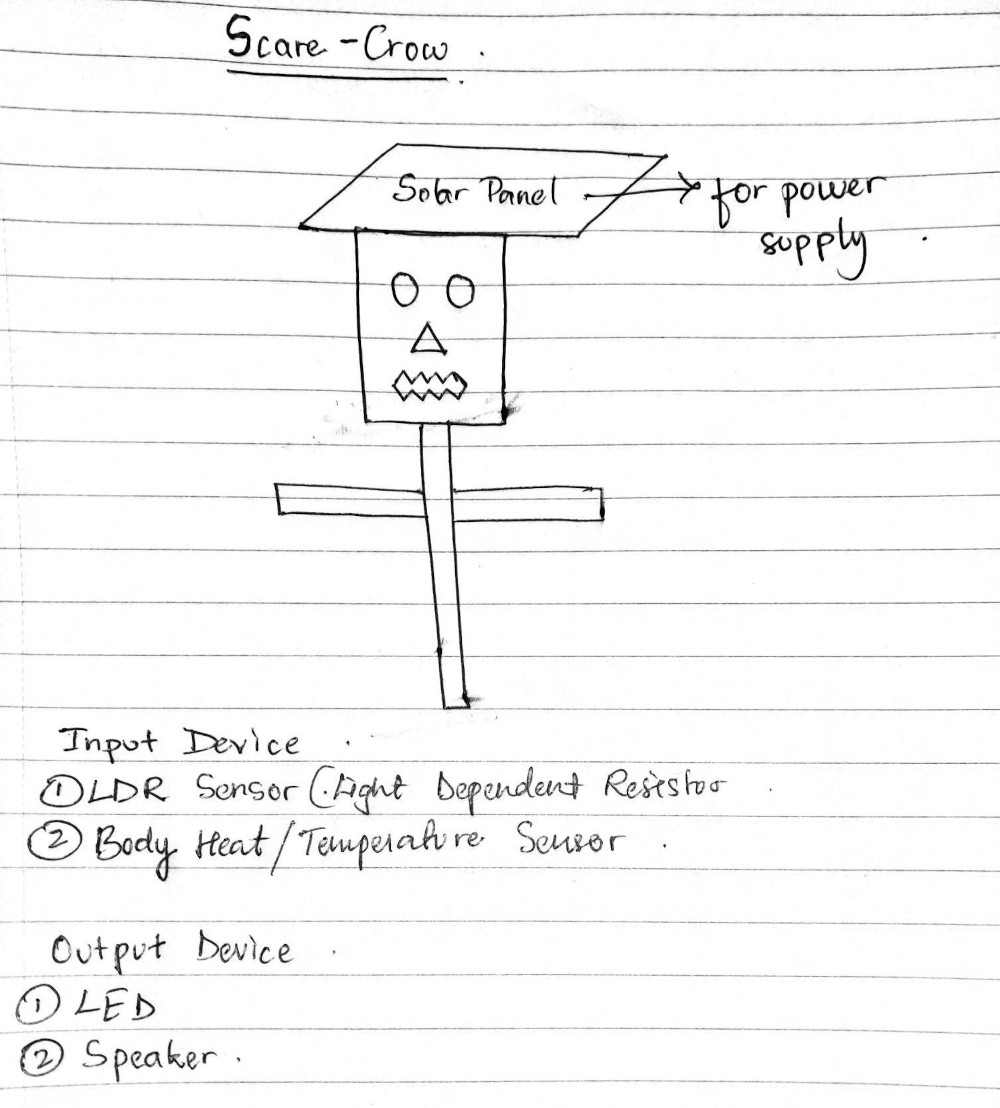 Scare-Crow.
Solar Panel → for power
supply.
Input Device.
① LDR Sensor (Light Dependent Resistor
② Body Heat/Temperature Sensor.
Output Device.
① LED
② Speaker.